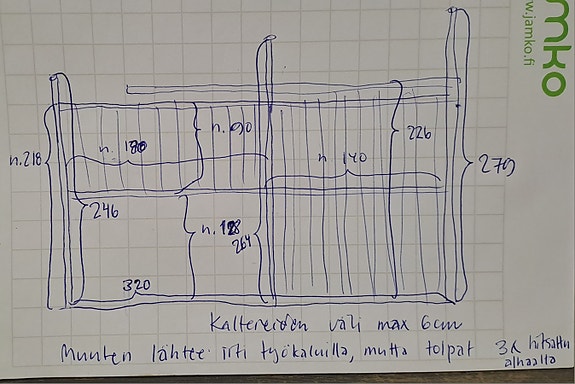 mko
w.jamko.fi
n.218
n. 180
n. 90
226
n. 140
279
246
n. 128
264
320
Kaltereiden väli max 6cm
Muuten lähtee irti työkaluilla, mutta tolpat 3x hitsattu
alhaalta